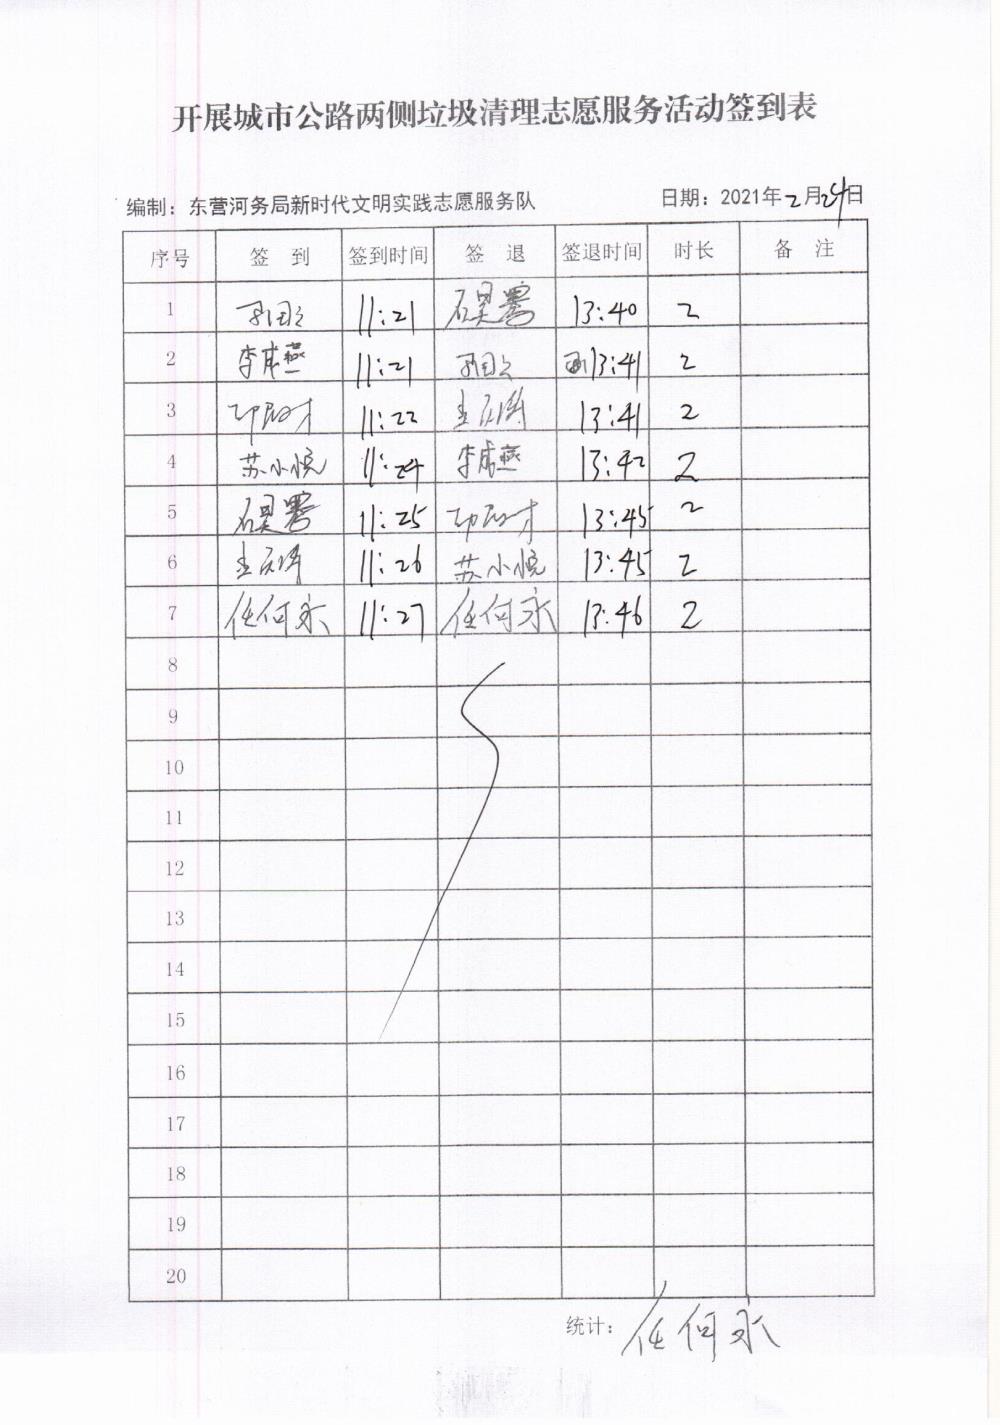 开展城市公路两侧垃圾清理志愿服务活动签到表
编制：东营河务局新时代文明实践志愿服务队 日期：2021年2月24日
序号 签 到 签到时间 签 退 签退时间 时长 备 注
1 11:21 13:40 2
2 李成燕 11:21 13:41 2
3 11:22 13:41 2
4 苏小悦 11:24 李成燕 13:42 2
5 11:25 13:45 2
6 11:26 苏小悦 13:45 2
7 任何永 11:27 任何永 13:46 2
8
9
10
11
12
13
14
15
16
17
18
19
20
统计：任何永